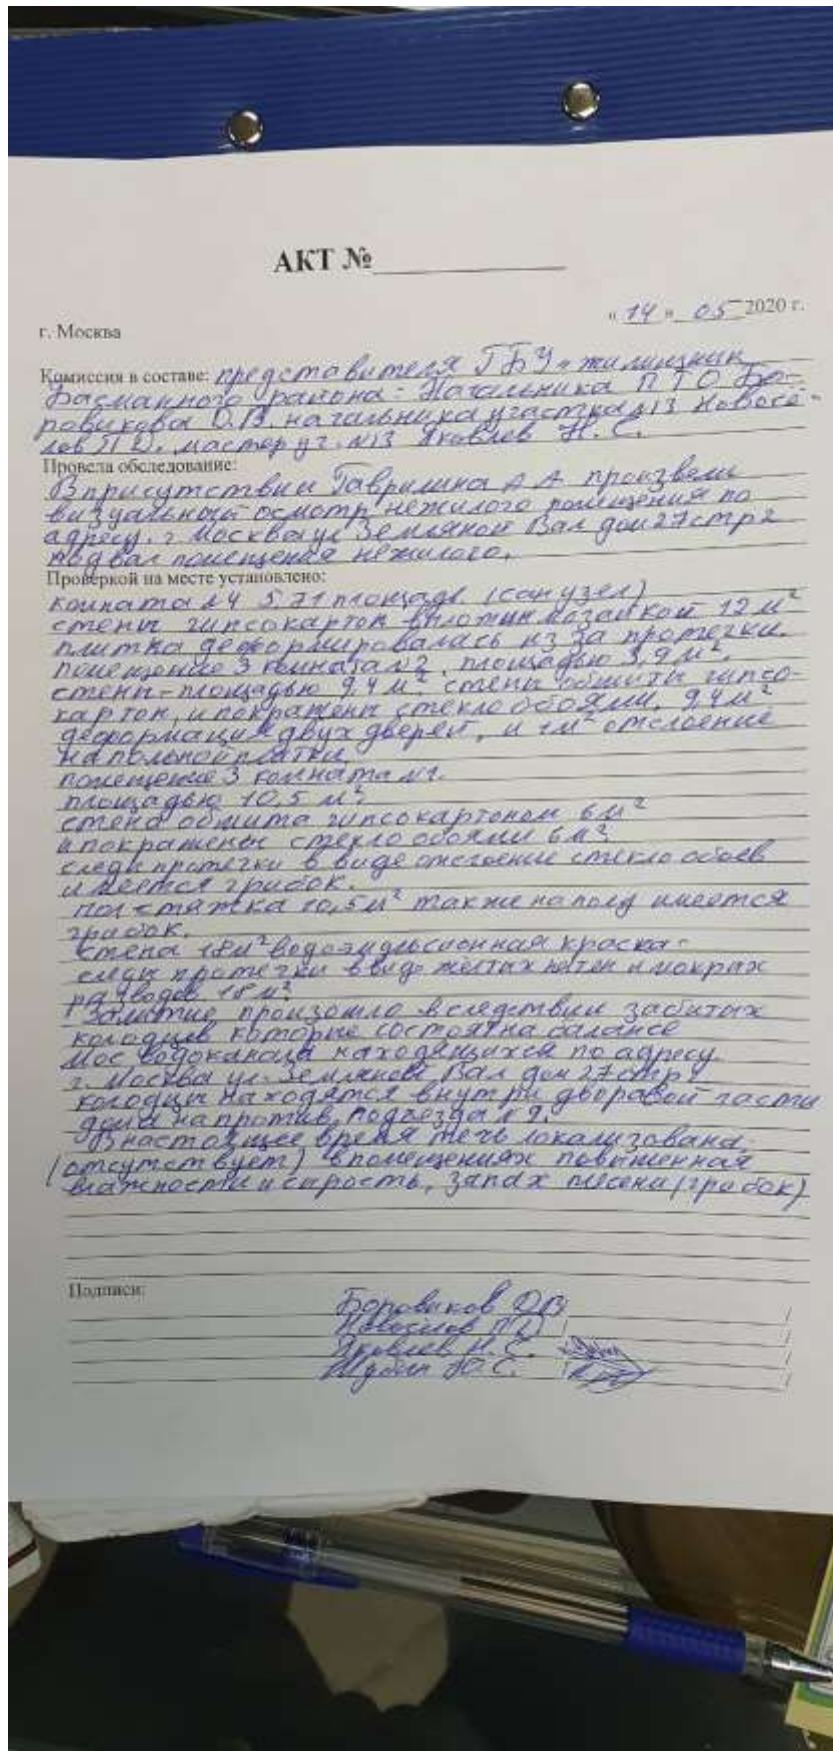 АКТ №
г. Москва
« 14 » 05 2020 г.
Комиссия в составе: представителя ГБУ "жилищник
Басманного района: Начальника ПТО Бо-
ровикова О.В. начальника участка №13 Новосё-
лов П.Д. мастер уч. №13 Яковлев Н.С.
Провела обследование:
В присутствии Гаврилина А А произвели
визуальный осмотр нежилого помещения по
адресу. г Москва ул Земляной Вал дом 27 стр 2
подвал помещения нежилого.
Проверкой на месте установлено:
комната №4 5.71 площадь (сан узел)
стены гипсокартон мозаикой 12 м²
плитка деформировалась из за протечки.
помещение 3 комната №2, площадью 3,9 м².
стены-площадью 9.4 м² стены обшиты гипсо-
картон, и покрашены стекло обоями, 9,4 м²
деформация двух дверей, и 1 м² отслоение
напольной
помещение 3 комната №1.
площадью 10,5 м²
стена обшита гипсокартоном 6 м²
и покрашены стекло обоями 6 м²
следы протечки в виде отслоение стекло обоев
имеется грибок.
пол стяжка 10,5 м² также на полу имеется
грибок.
стена 18 м² водоэмульсионная краска-
следы протечки в виде желтых пятен и мокрых
разводов 18 м²
Залитие произошло вследствии забитых
колодцев которые состоят на балансе
Мос водоканала находящихся по адресу.
г. Москва ул. Земляной Вал дом 27 стр 1
колодцы находятся внутри дворавой части
дома на против, подъезда №9.
В настоящее время течь локализована
(отсутствует) в помещениях повышенная
влажность и сырость, запах плесени (грибок)
Подписи:
Боровиков ОВ
Новоселов П.Д
Яковлев Н.С.
Шубин Ю.С.